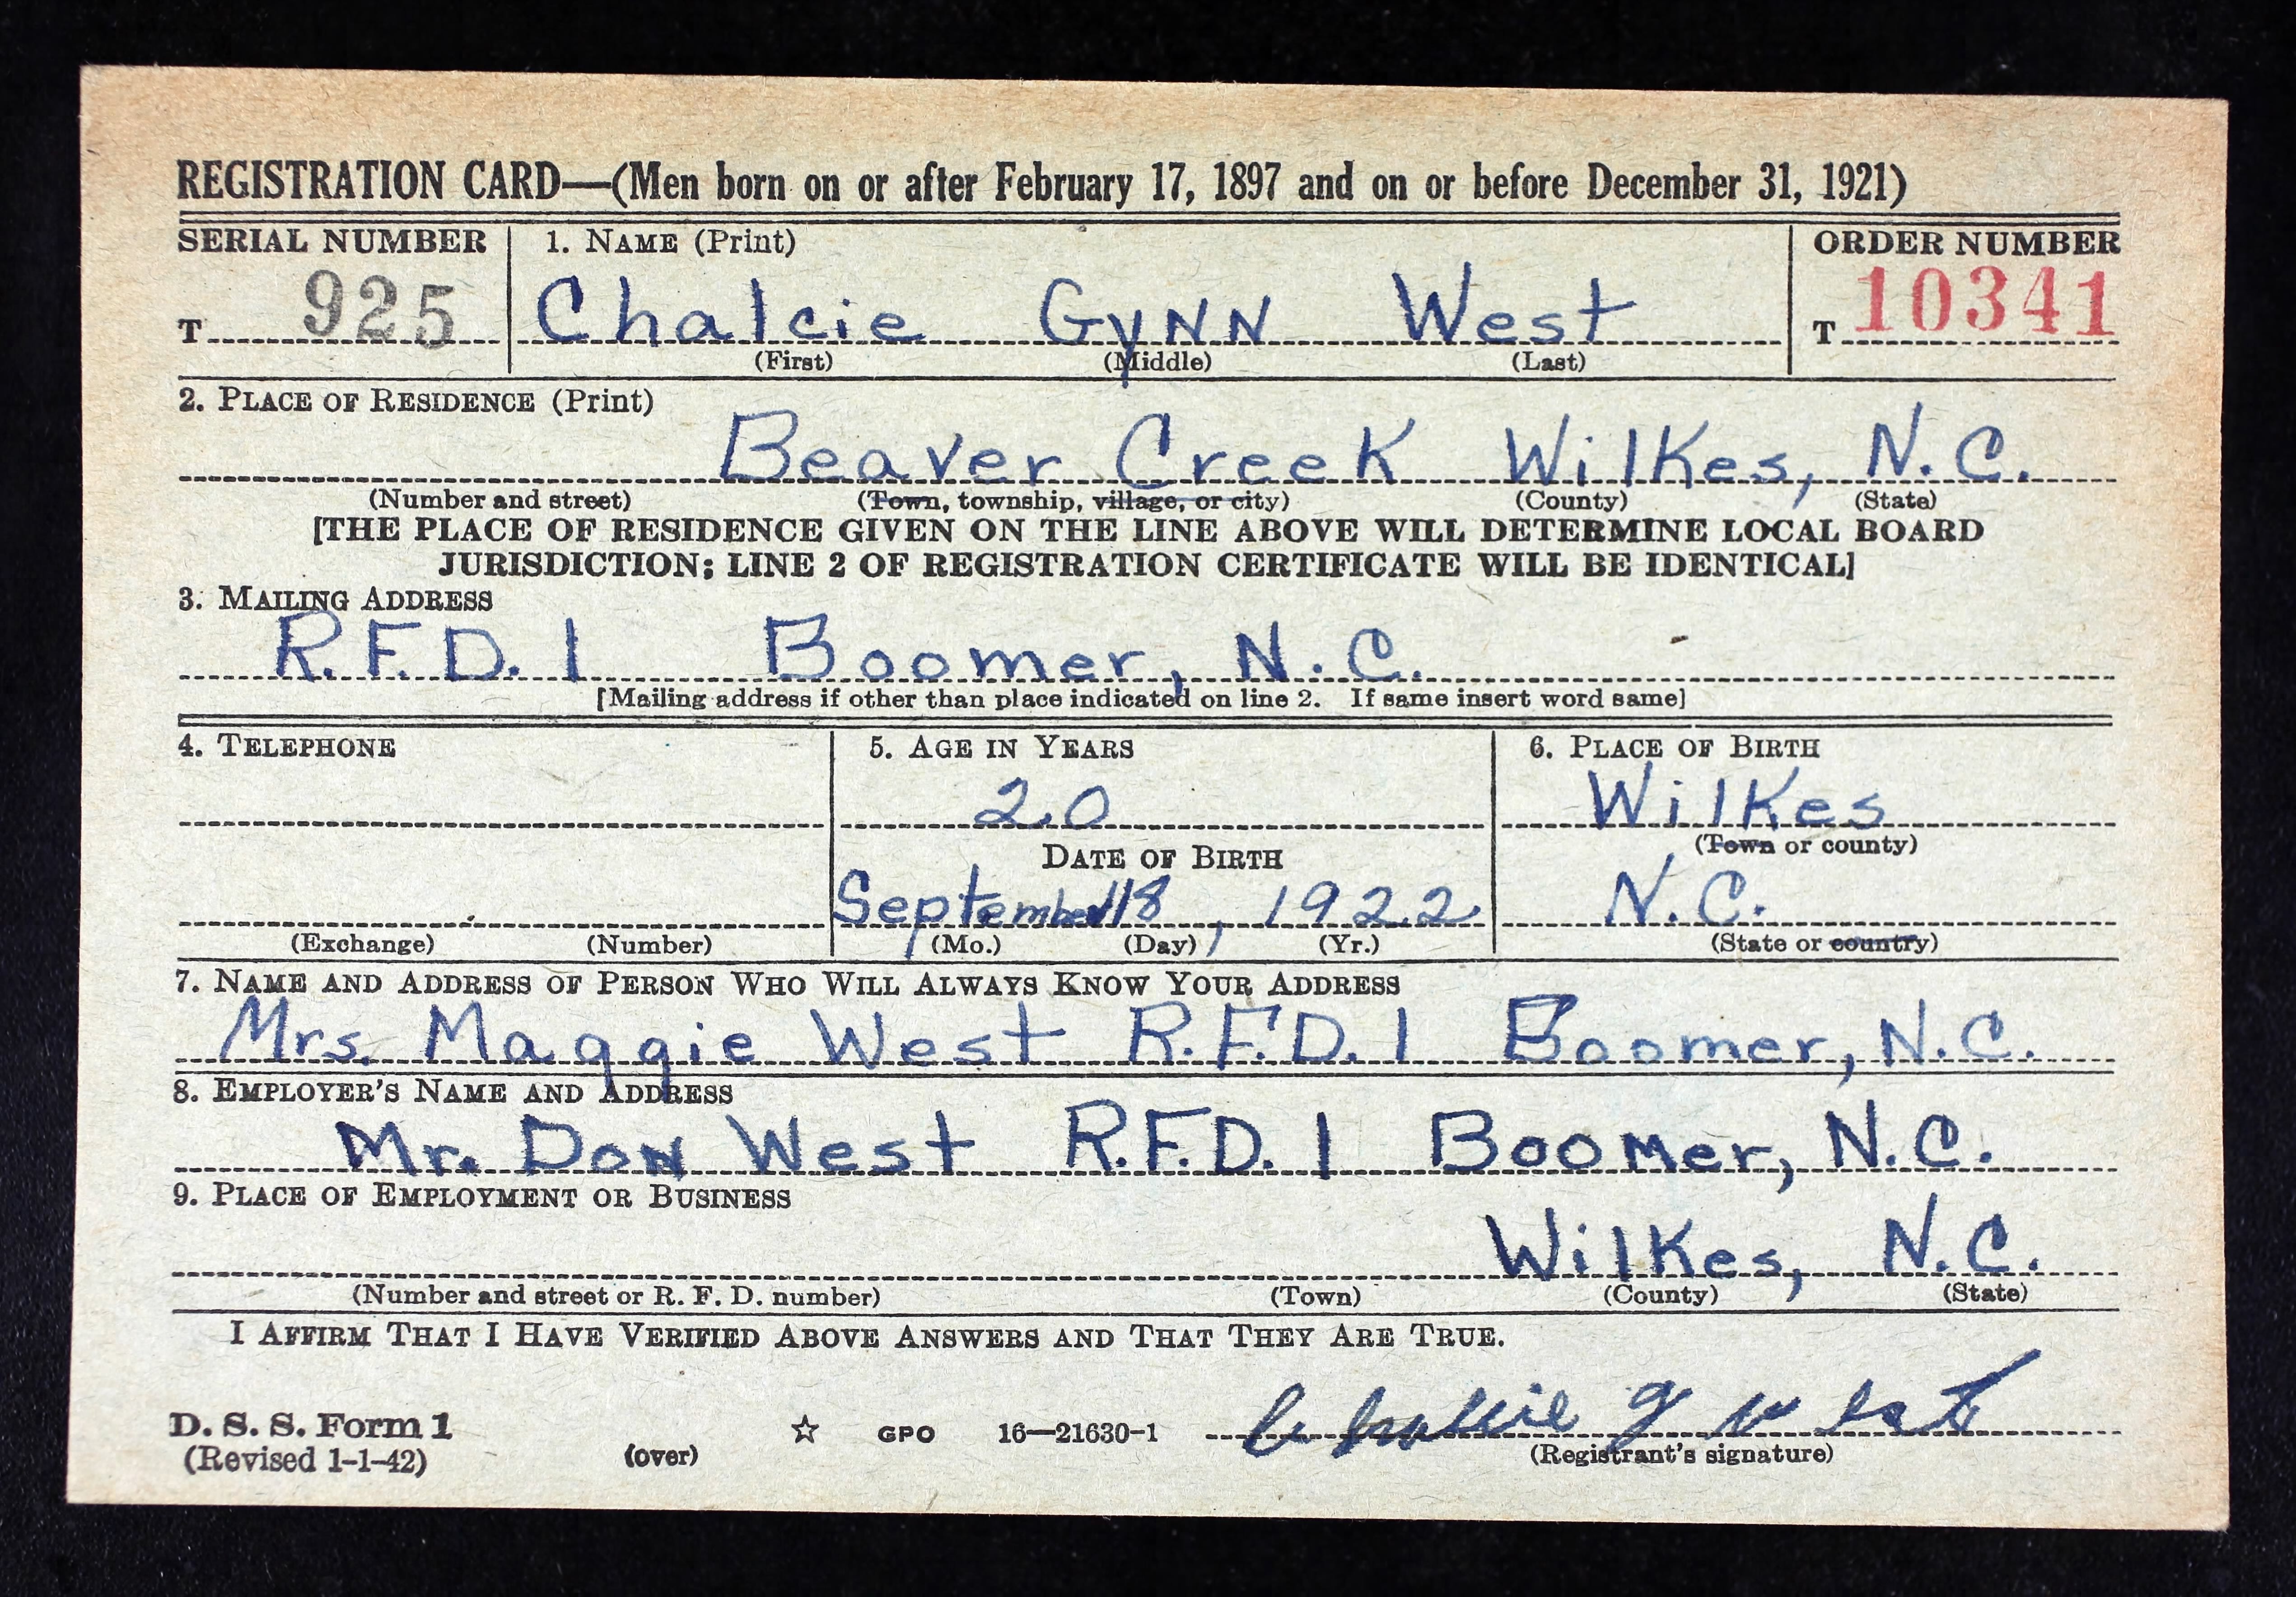 REGISTRATION CARD—(Men born on or after February 17, 1897 and on or before December 31, 1921)
SERIAL NUMBER 1. NAME (Print) ORDER NUMBER
T 925 Chalcie Gynn West T 10341
(First) (Middle) (Last)
2. PLACE OF RESIDENCE (Print)
Beaver Creek Wilkes, N.C.
(Number and street) (Town, township, village, or city) (County) (State)
[THE PLACE OF RESIDENCE GIVEN ON THE LINE ABOVE WILL DETERMINE LOCAL BOARD
JURISDICTION; LINE 2 OF REGISTRATION CERTIFICATE WILL BE IDENTICAL]
3. MAILING ADDRESS
R.F.D. 1 Boomer, N.C.
[Mailing address if other than place indicated on line 2. If same insert word same]
4. TELEPHONE 5. AGE IN YEARS 6. PLACE OF BIRTH
20 Wilkes
DATE OF BIRTH (Town or county)
September 18, 1922 N.C.
(Exchange) (Number) (Mo.) (Day) (Yr.) (State or country)
7. NAME AND ADDRESS OF PERSON WHO WILL ALWAYS KNOW YOUR ADDRESS
Mrs. Maggie West R.F.D. 1 Boomer, N.C.
8. EMPLOYER'S NAME AND ADDRESS
Mr. Don West R.F.D. 1 Boomer, N.C.
9. PLACE OF EMPLOYMENT OR BUSINESS
Wilkes, N.C.
(Number and street or R. F. D. number) (Town) (County) (State)
I AFFIRM THAT I HAVE VERIFIED ABOVE ANSWERS AND THAT THEY ARE TRUE.
D. S. S. Form 1
(Revised 1-1-42) (over) ☆ GPO 16—21630-1 G West
(Registrant's signature)